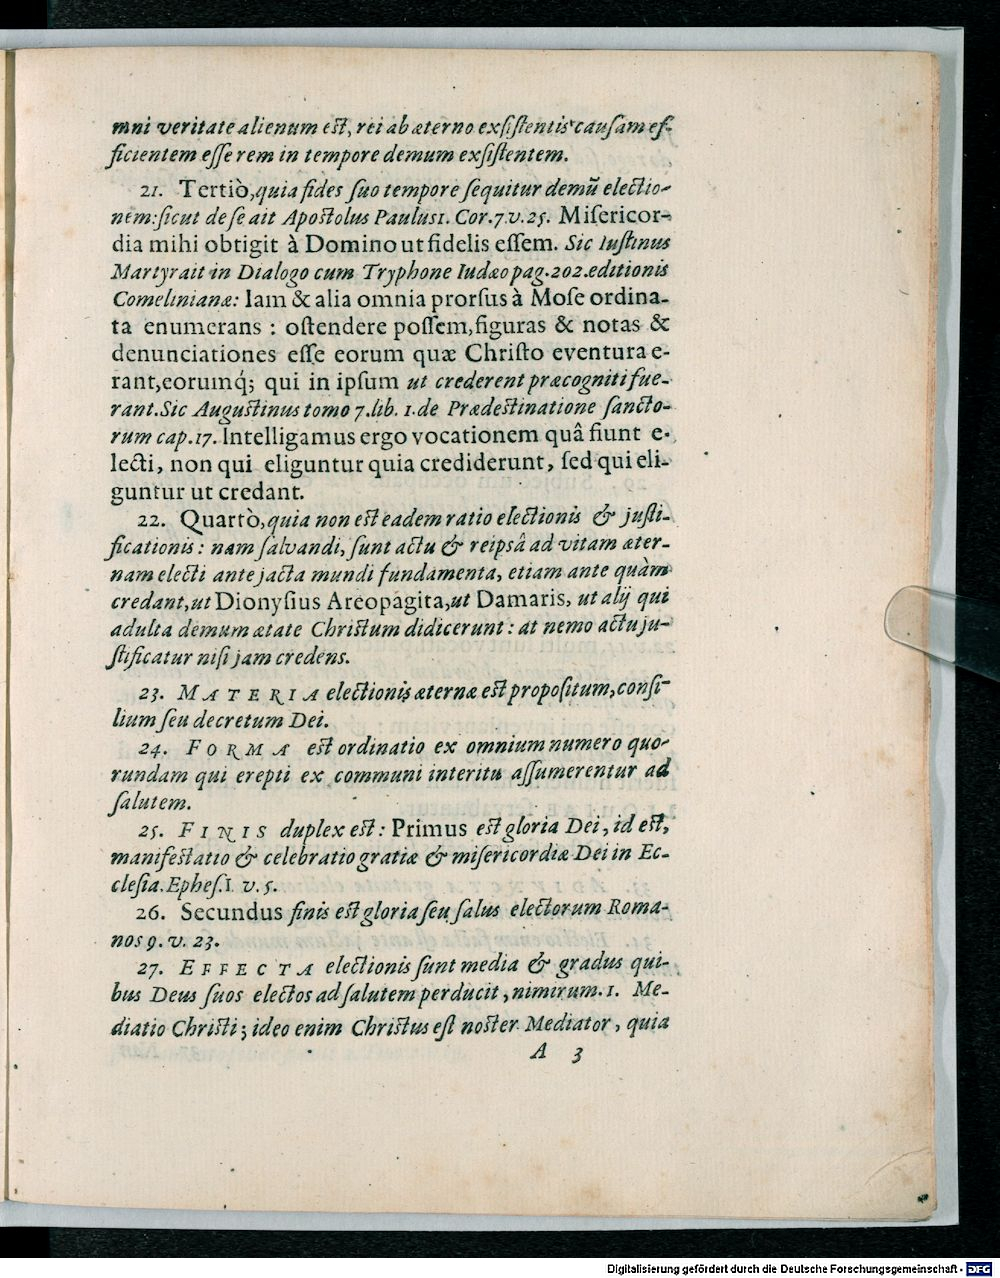 mni veritate alienum est, rei ab æterno exsistentis causam ef-
ficientem esse rem in tempore demum exsistentem.
21. Tertiò, quia fides suo tempore sequitur demũ electio-
nem: sicut de se ait Apostolus Paulus 1. Cor. 7. v. 25. Misericor-
dia mihi obtigit à Domino ut fidelis essem. Sic Iustinus
Martyr ait in Dialogo cum Tryphone Iudæo pag. 202. editionis
Comelinianæ: Iam & alia omnia prorsus à Mose ordina-
ta enumerans : ostendere possem, figuras & notas &
denunciationes esse eorum quæ Christo eventura e-
rant, eorumq́; qui in ipsum ut crederent præcogniti fue-
rant. Sic Augustinus tomo 7. lib. 1. de Prædestinatione sancto-
rum cap. 17. Intelligamus ergo vocationem quâ fiunt e-
lecti, non qui eliguntur quia crediderunt, sed qui eli-
guntur ut credant.
22. Quartò, quia non est eadem ratio electionis & justi-
ficationis : nam salvandi, sunt actu & reipsâ ad vitam æter-
nam electi ante jacta mundi fundamenta, etiam ante quàm
credant, ut Dionysius Areopagita, ut Damaris, ut alij qui
adulta demum ætate Christum didicerunt : at nemo actu ju-
stificatur nisi jam credens.
23. MATERIA electionis æternæ est propositum, consi-
lium seu decretum Dei.
24. FORMA est ordinatio ex omnium numero quo-
rundam qui erepti ex communi interitu assumerentur ad
salutem.
25. FINIS duplex est : Primus est gloria Dei, id est,
manifestatio & celebratio gratiæ & misericordiæ Dei in Ec-
clesia. Ephes. 1. v. 5.
26. Secundus finis est gloria seu salus electorum Roma-
nos 9. v. 23.
27. EFFECTA electionis sunt media & gradus qui-
bus Deus suos electos ad salutem perducit, nimirum. 1. Me-
diatio Christi; ideo enim Christus est noster Mediator, quia
A 3
Digitalisierung gefördert durch die Deutsche Forschungsgemeinschaft - DFG